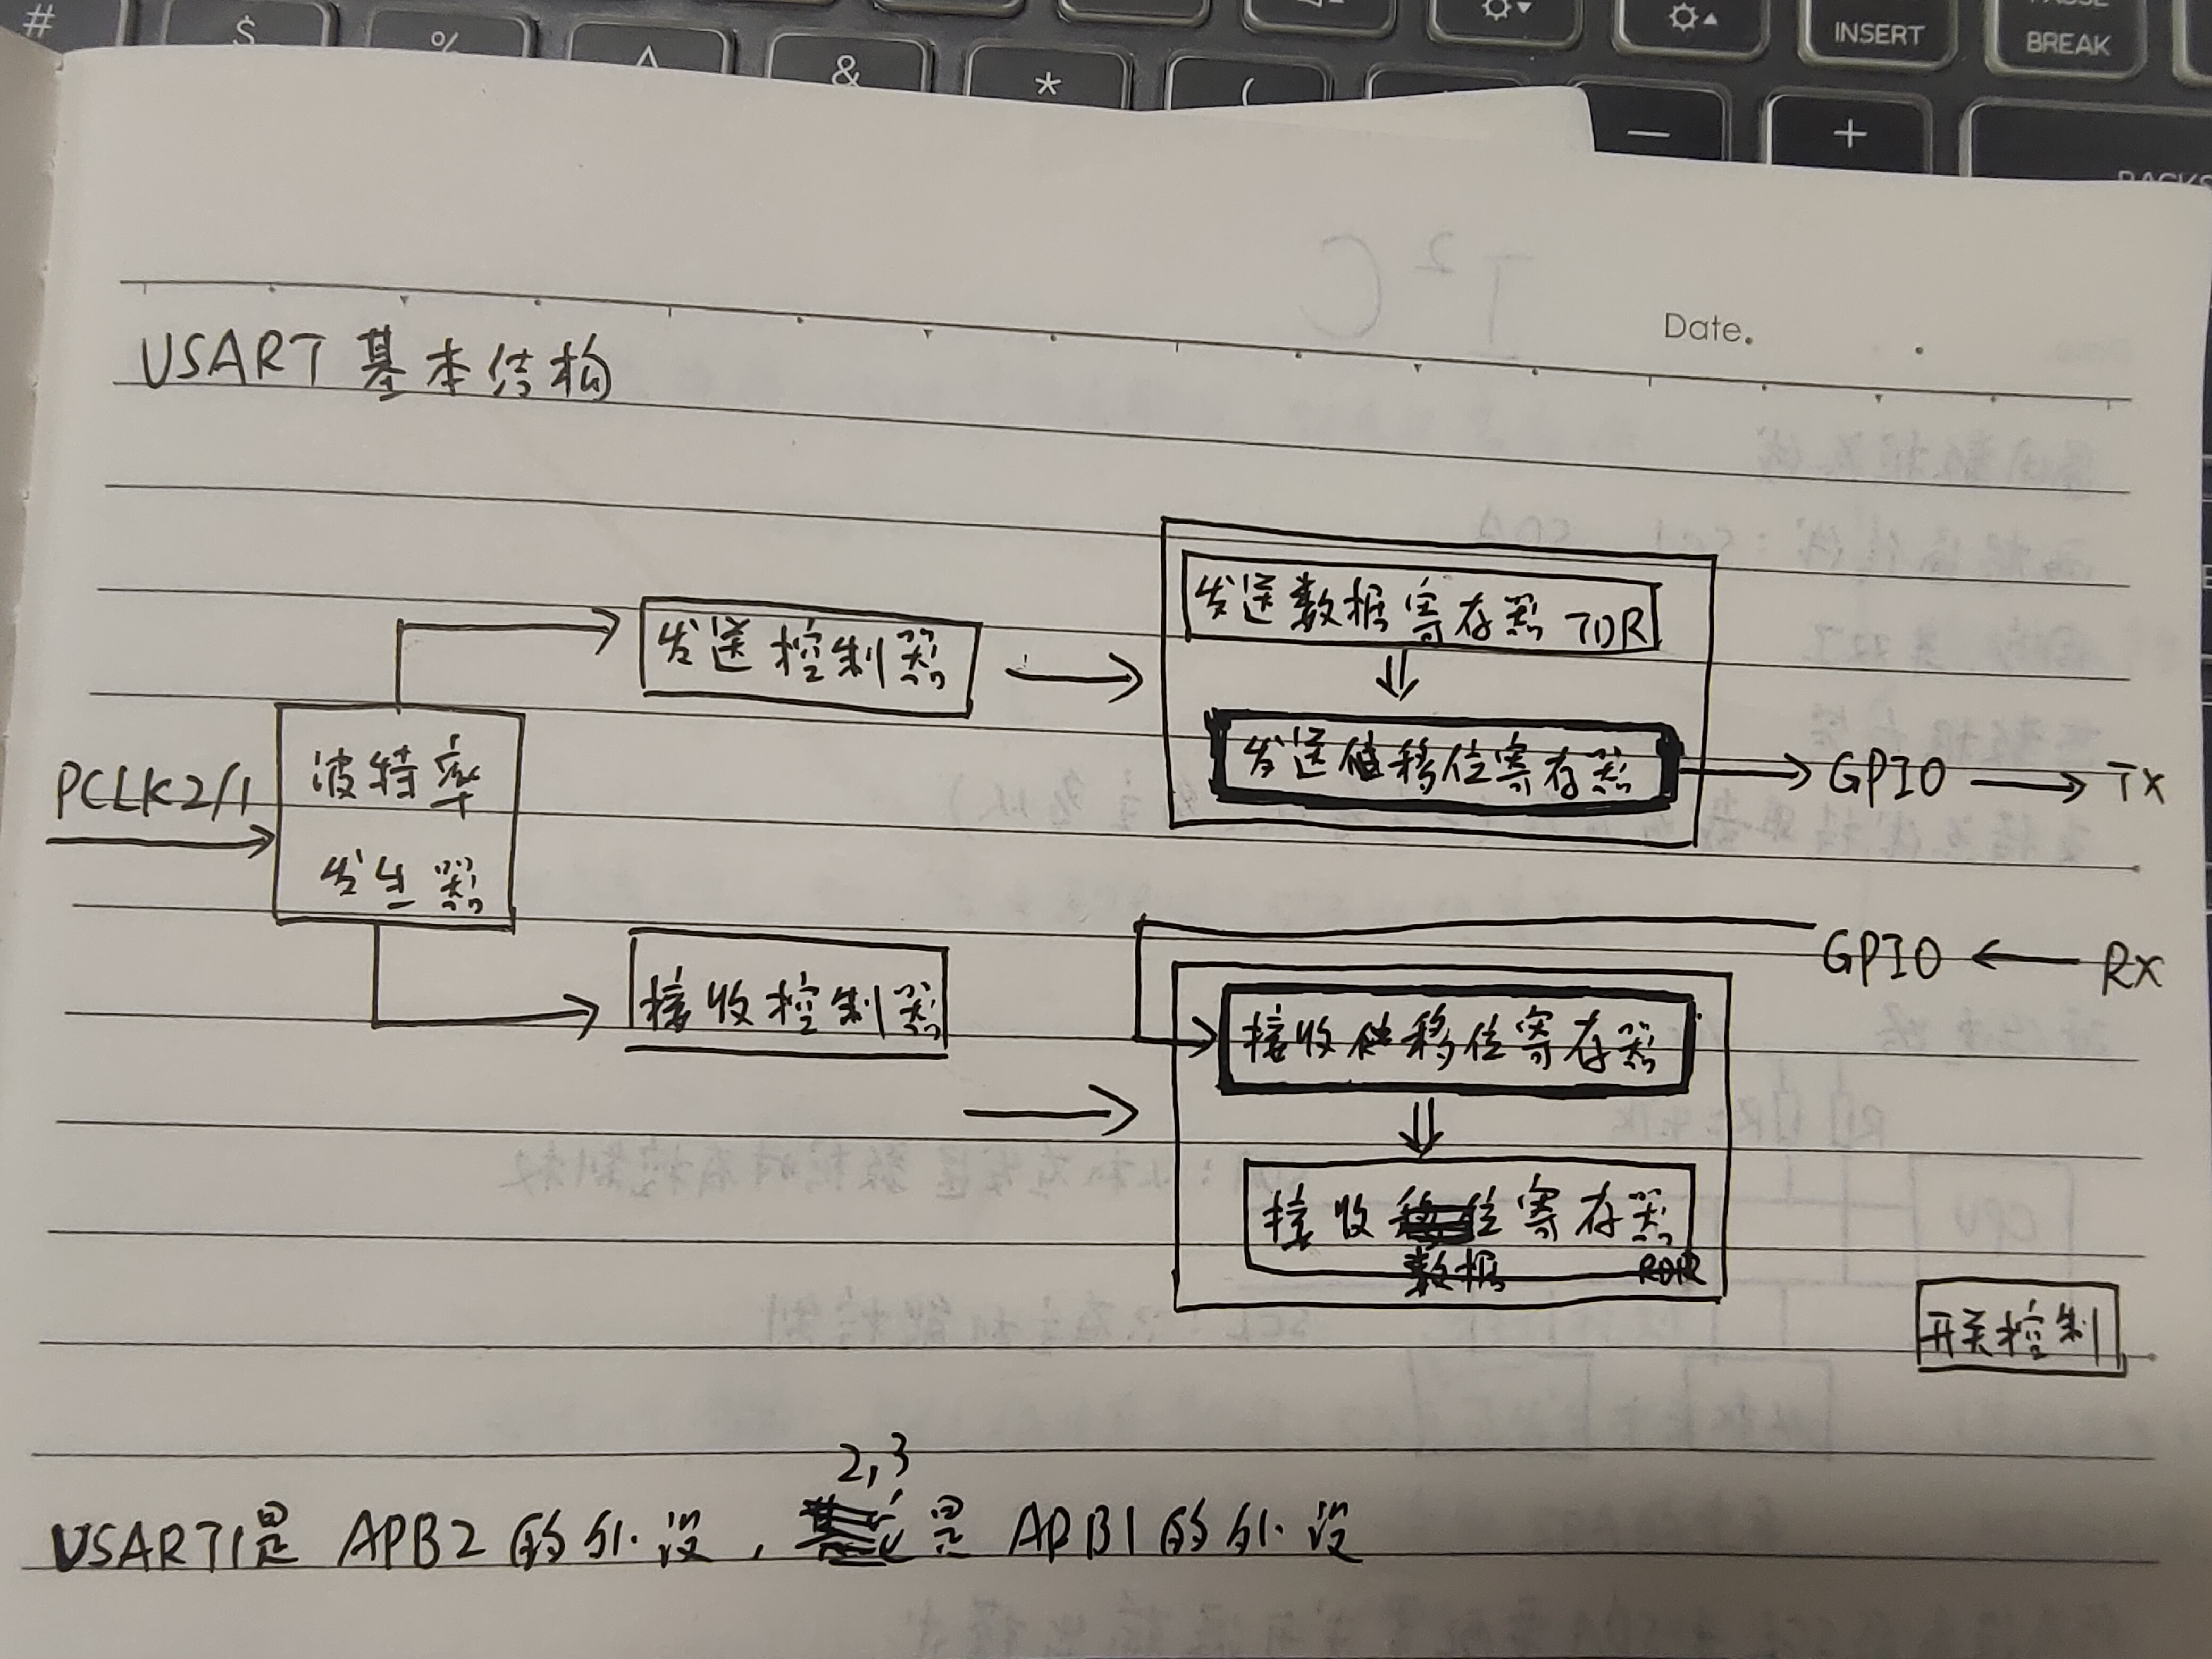 # $ % ^ & * (
INSERT
BREAK
— +
BACKS
Date.
USART 基本结构
发送数据寄存器 TDR
发送控制器
发送值移位寄存器
GPIO
TX
PCLK2/1
波特率
发生器
GPIO
RX
接收控制器
接收值移位寄存器
接收 寄存器
数据 RDR
开关控制
2,3
USART1是 APB2 的外设, 是 APB1 的外设